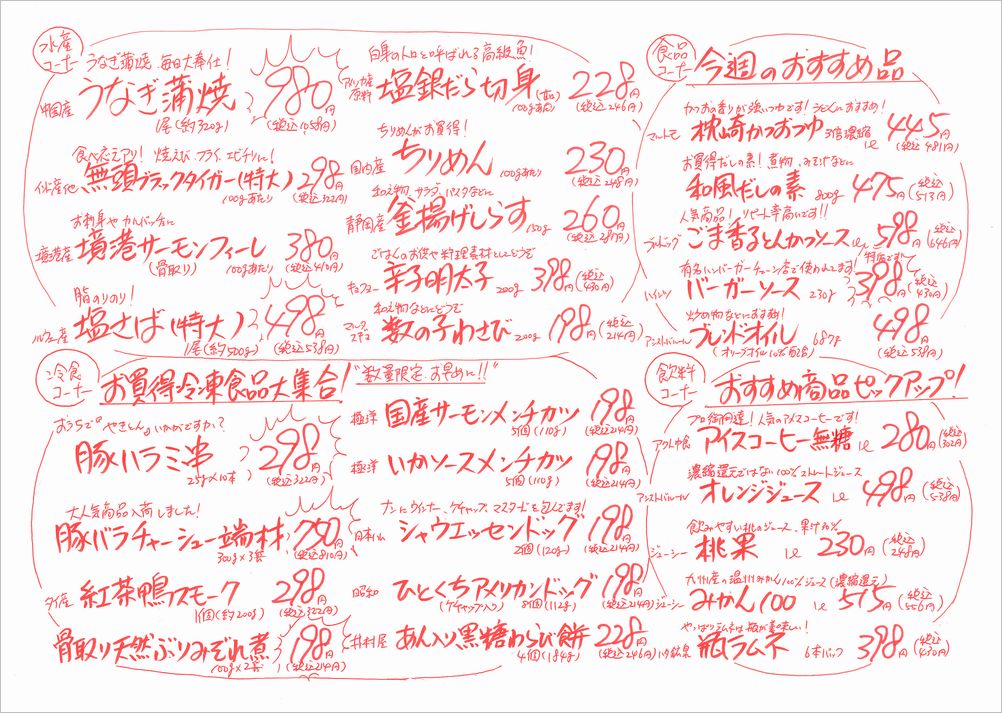 水産コーナー
うなぎ蒲焼、毎日大奉仕!
中国産 うなぎ蒲焼 980円
1尾(約320g) (税込1058円)
食べ応えアリ! 焼えび、フライ、エビチリに!
インド産他 無頭ブラックタイガー(特大) 298円
100gあたり (税込322円)
お刺身や カルパッチョに
境港産 境港サーモンフィーレ 380円
(骨取り) 100gあたり (税込410円)
脂のりのり!
ノルウェー産 塩さば(特大) 498円
1尾(約500g) (税込538円)
白身のトロと呼ばれる高級魚!
アメリカ産原料 塩銀だら切身 228円
100gあたり (税込246円)
ちりめんがお買得!
国内産 ちりめん 230円
100gあたり (税込248円)
和え物、サラダ、パスタなどに
静岡産 釜揚げしらす 260円
150g (税込281円)
ごはんのお供や料理素材としてどうぞ
キョクヨー 辛子明太子 200g 398円 (税込430円)
和え物などにどうぞ
数の子わさび 200g 198円 (税込214円)
食品コーナー
今週のおすすめ品
かつおの香りが強いつゆです! うどんにおすすめ!
マルトモ 枕崎かつおつゆ 3倍濃縮 1ℓ 445円
(税込481円)
お買得だしの素! 煮物、みそ汁などに
和風だしの素 800g 475円 (税込513円)
人気商品! リピート率高いです!!
ブルドッグ ごま香るとんかつソース 1ℓ 598円 (税込646円)
有名ハンバーガーチェーン店で使われてます! 特価です
ハインツ バーガーソース 230g 398円 (税込430円)
炒め物などにおすすめ!
ブレンドオイル 687g 498円
(オリーブオイル10%配合) (税込538円)
冷食コーナー
お買得冷凍食品大集合! "数量限定、お早めに!!"
おうちで“やきとん”いかがですか?
豚ハラミ串 298円
25g×10本 (税込322円)
大人気商品入荷しました!
豚バラチャーシュー端材 750円
300g×3袋 (税込810円)
タイ産 紅茶鴨スモーク 298円
1個(約200g) (税込322円)
骨取り天然ぶりみぞれ煮 198円
100g×2袋 (税込214円)
極洋 国産サーモンメンチカツ 198円
5個(110g) (税込214円)
極洋 いかソースメンチカツ 198円
5個(110g) (税込214円)
ナンにウインナー、ケチャップ、マスタードを包んでます!
日本ハム シャウエッセンドッグ 198円
2個(120g) (税込214円)
昭和 ひとくちアメリカンドッグ 198円
(ケチャップ入り) 8個(112g) (税込214円)
井村屋 あん入り黒糖わらび餅 228円
4個(184g) (税込246円)
飲料コーナー
おすすめ商品ピックアップ!
プロ御用達! 人気のアイスコーヒーです!
アートコーヒー アイスコーヒー無糖 1ℓ 280円 (税込302円)
濃縮還元ではない100%ストレートジュース
オレンジジュース 1ℓ 498円 (税込538円)
飲みやすい桃のジュース、果汁20%
ジューシー 桃果 1ℓ 230円 (税込248円)
九州産の温州みかん100%ジュース(濃縮還元)
ジューシー みかん100 1ℓ 515円 (税込556円)
やっぱりラムネは瓶が美味しい!
ハタ鉱泉 瓶ラムネ 6本パック 398円 (税込430円)